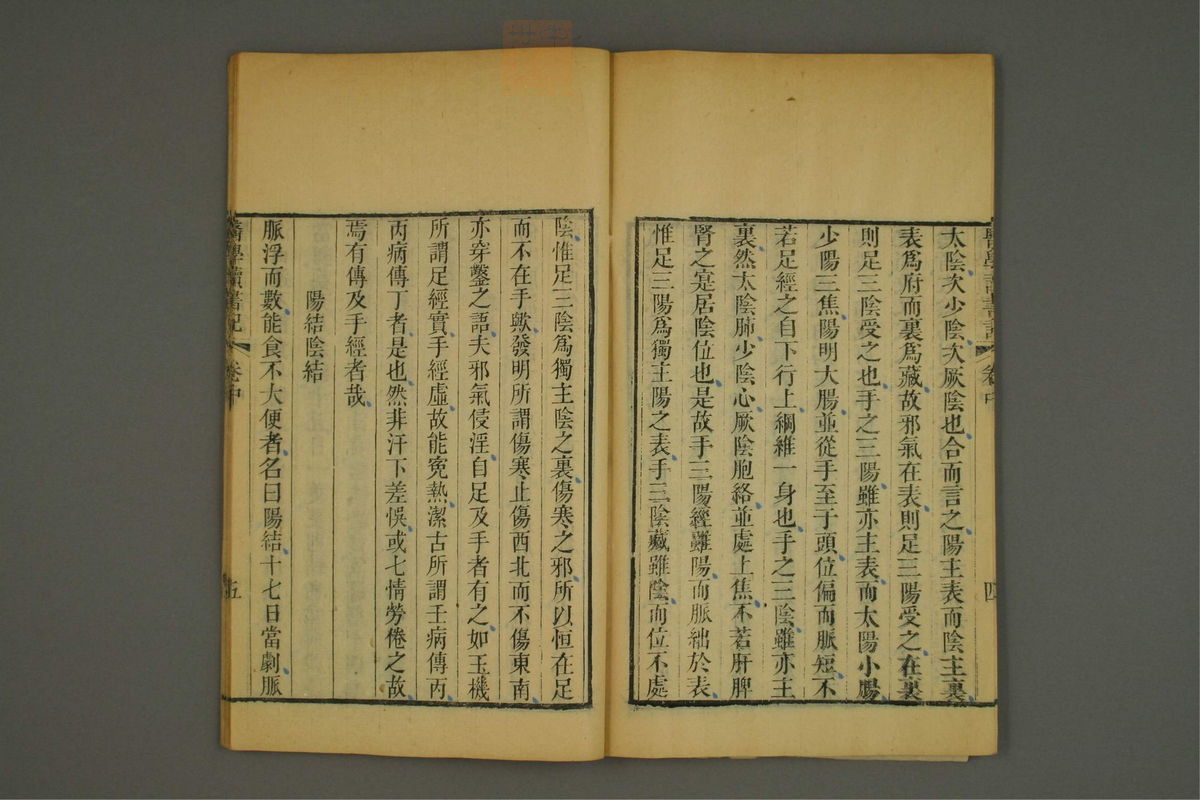 醫學讀書記 卷中 四
太陰次少陰次厥陰也合而言之陽主表而陰主裏
表爲府而裏爲藏故邪氣在表則足三陽受之在裏
則足三陰受之也手之三陽雖亦主表而太陽小腸
少陽三焦陽明大腸並從手至于頭位偏而脈短不
若足經之自下行上綱維一身也手之三陰雖亦主
裏然太陰肺少陰心厥陰胞絡並處上焦不若肝脾
腎之寔居陰位也是故手三陽經雖陽而脈絀於表
惟足三陽爲獨主陽之表手三陰藏雖陰而位不處
陰惟足三陰爲獨主陰之裏傷寒之邪所以恒在足
而不在手歟發明所謂傷寒止傷西北而不傷東南
亦穿鑿之語夫邪氣侵淫自足及手者有之如玉機
所謂足經實手經虛故能寃熱潔古所謂壬病傳丙
丙病傳丁者是也然非汗下差悞或七情勞倦之故
焉有傳及手經者哉
陽結陰結
脈浮而數能食不大便者名曰陽結十七日當劇脈
醫學讀書記 卷中 五